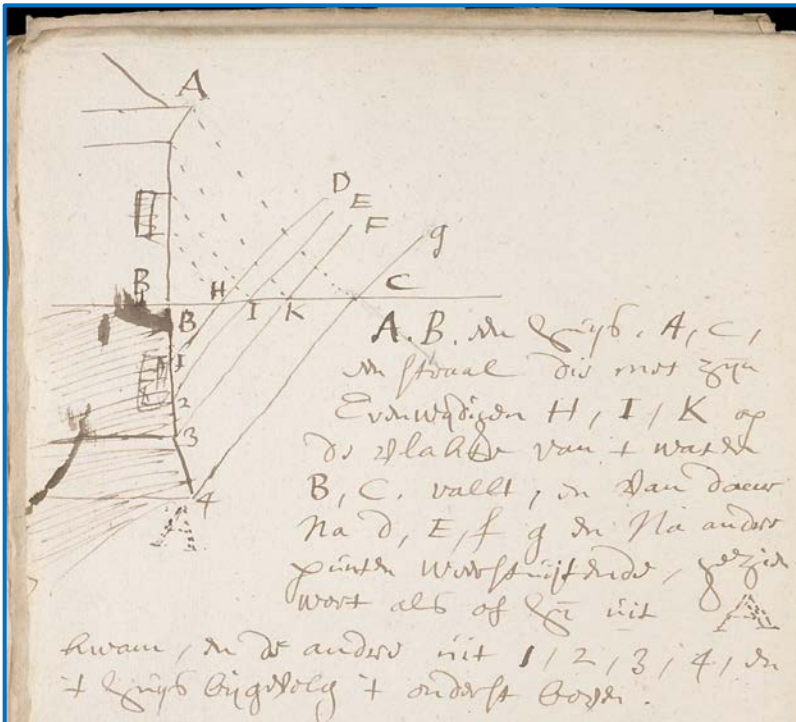 A
D
E
F
g
B
H
I
K
C
B
1
2
3
4
A
A. B. een huijs. A, C,
een straal die met zijn
Evenwijdigen H, I, K op
de vlakte van t water
B, C. vallt, en van daer
Na d, E, f g en Na andre
punten weerstuijtende, gezien
wort als of hij uit A
kwam, en de andre uit 1, 2, 3, 4, en
't huijs bijgevolg 't onderst boven.